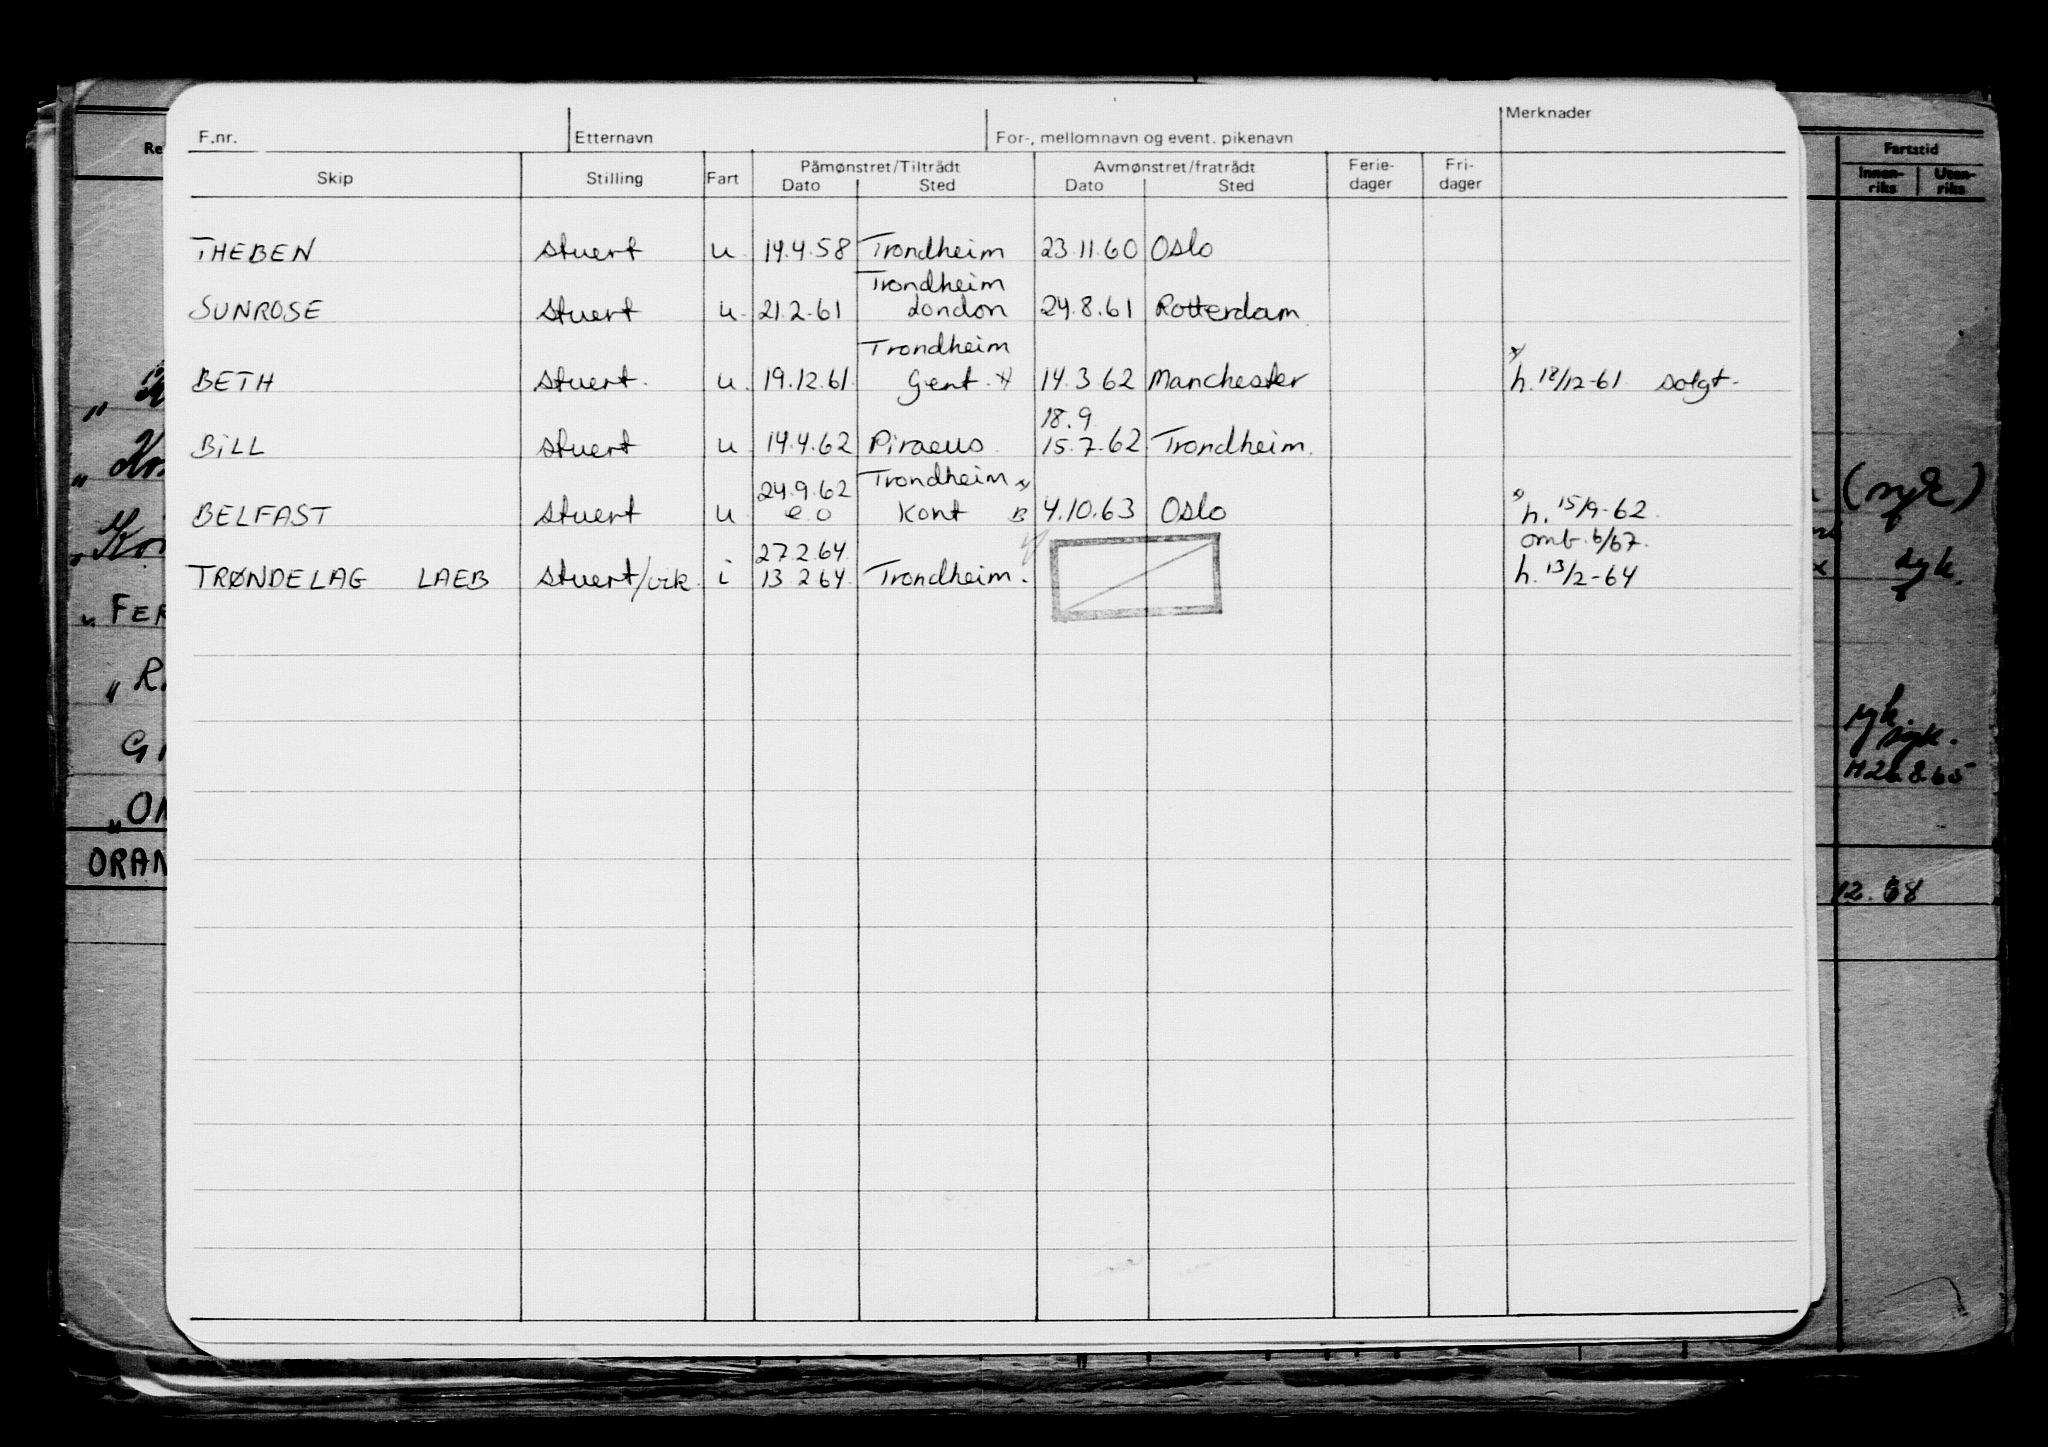 F.nr. Etternavn For-, mellomnavn og event. pikenavn Merknader
Skip Stilling Fart Påmønstret/Tiltrådt Avmønstret/fratrådt Ferie-dager Fri-dager
Dato Sted Dato Sted
THEBEN stuert u. 14.4.58 Trondheim 23.11.60 Oslo
Trondheim
SUNROSE stuert u. 21.2.61 London 24.8.61 Rotterdam
Trondheim
BETH stuert. u. 19.12.61. Gent. x) 14.3.62 Manchester x) h. 18/12-61 solgt.
18.9.
BILL stuert u. 14.4.62 Piraeus 15.7.62 Trondheim.
24.9.62 Trondheim x)
BELFAST stuert u. e.o Kont B 4.10.63 Oslo x) h. 15/9-62.
27.2.64 omb. 6/67.
TRØNDELAG LAEB stuert/vik. i 13.2.64. Trondheim. h. 13/2-64
Fartstid
Innen-riks Uten-riks
(syk)
syk.
„FER
„R
syk.
syk.
H 26.8.65
„ON
ORAN
12.68